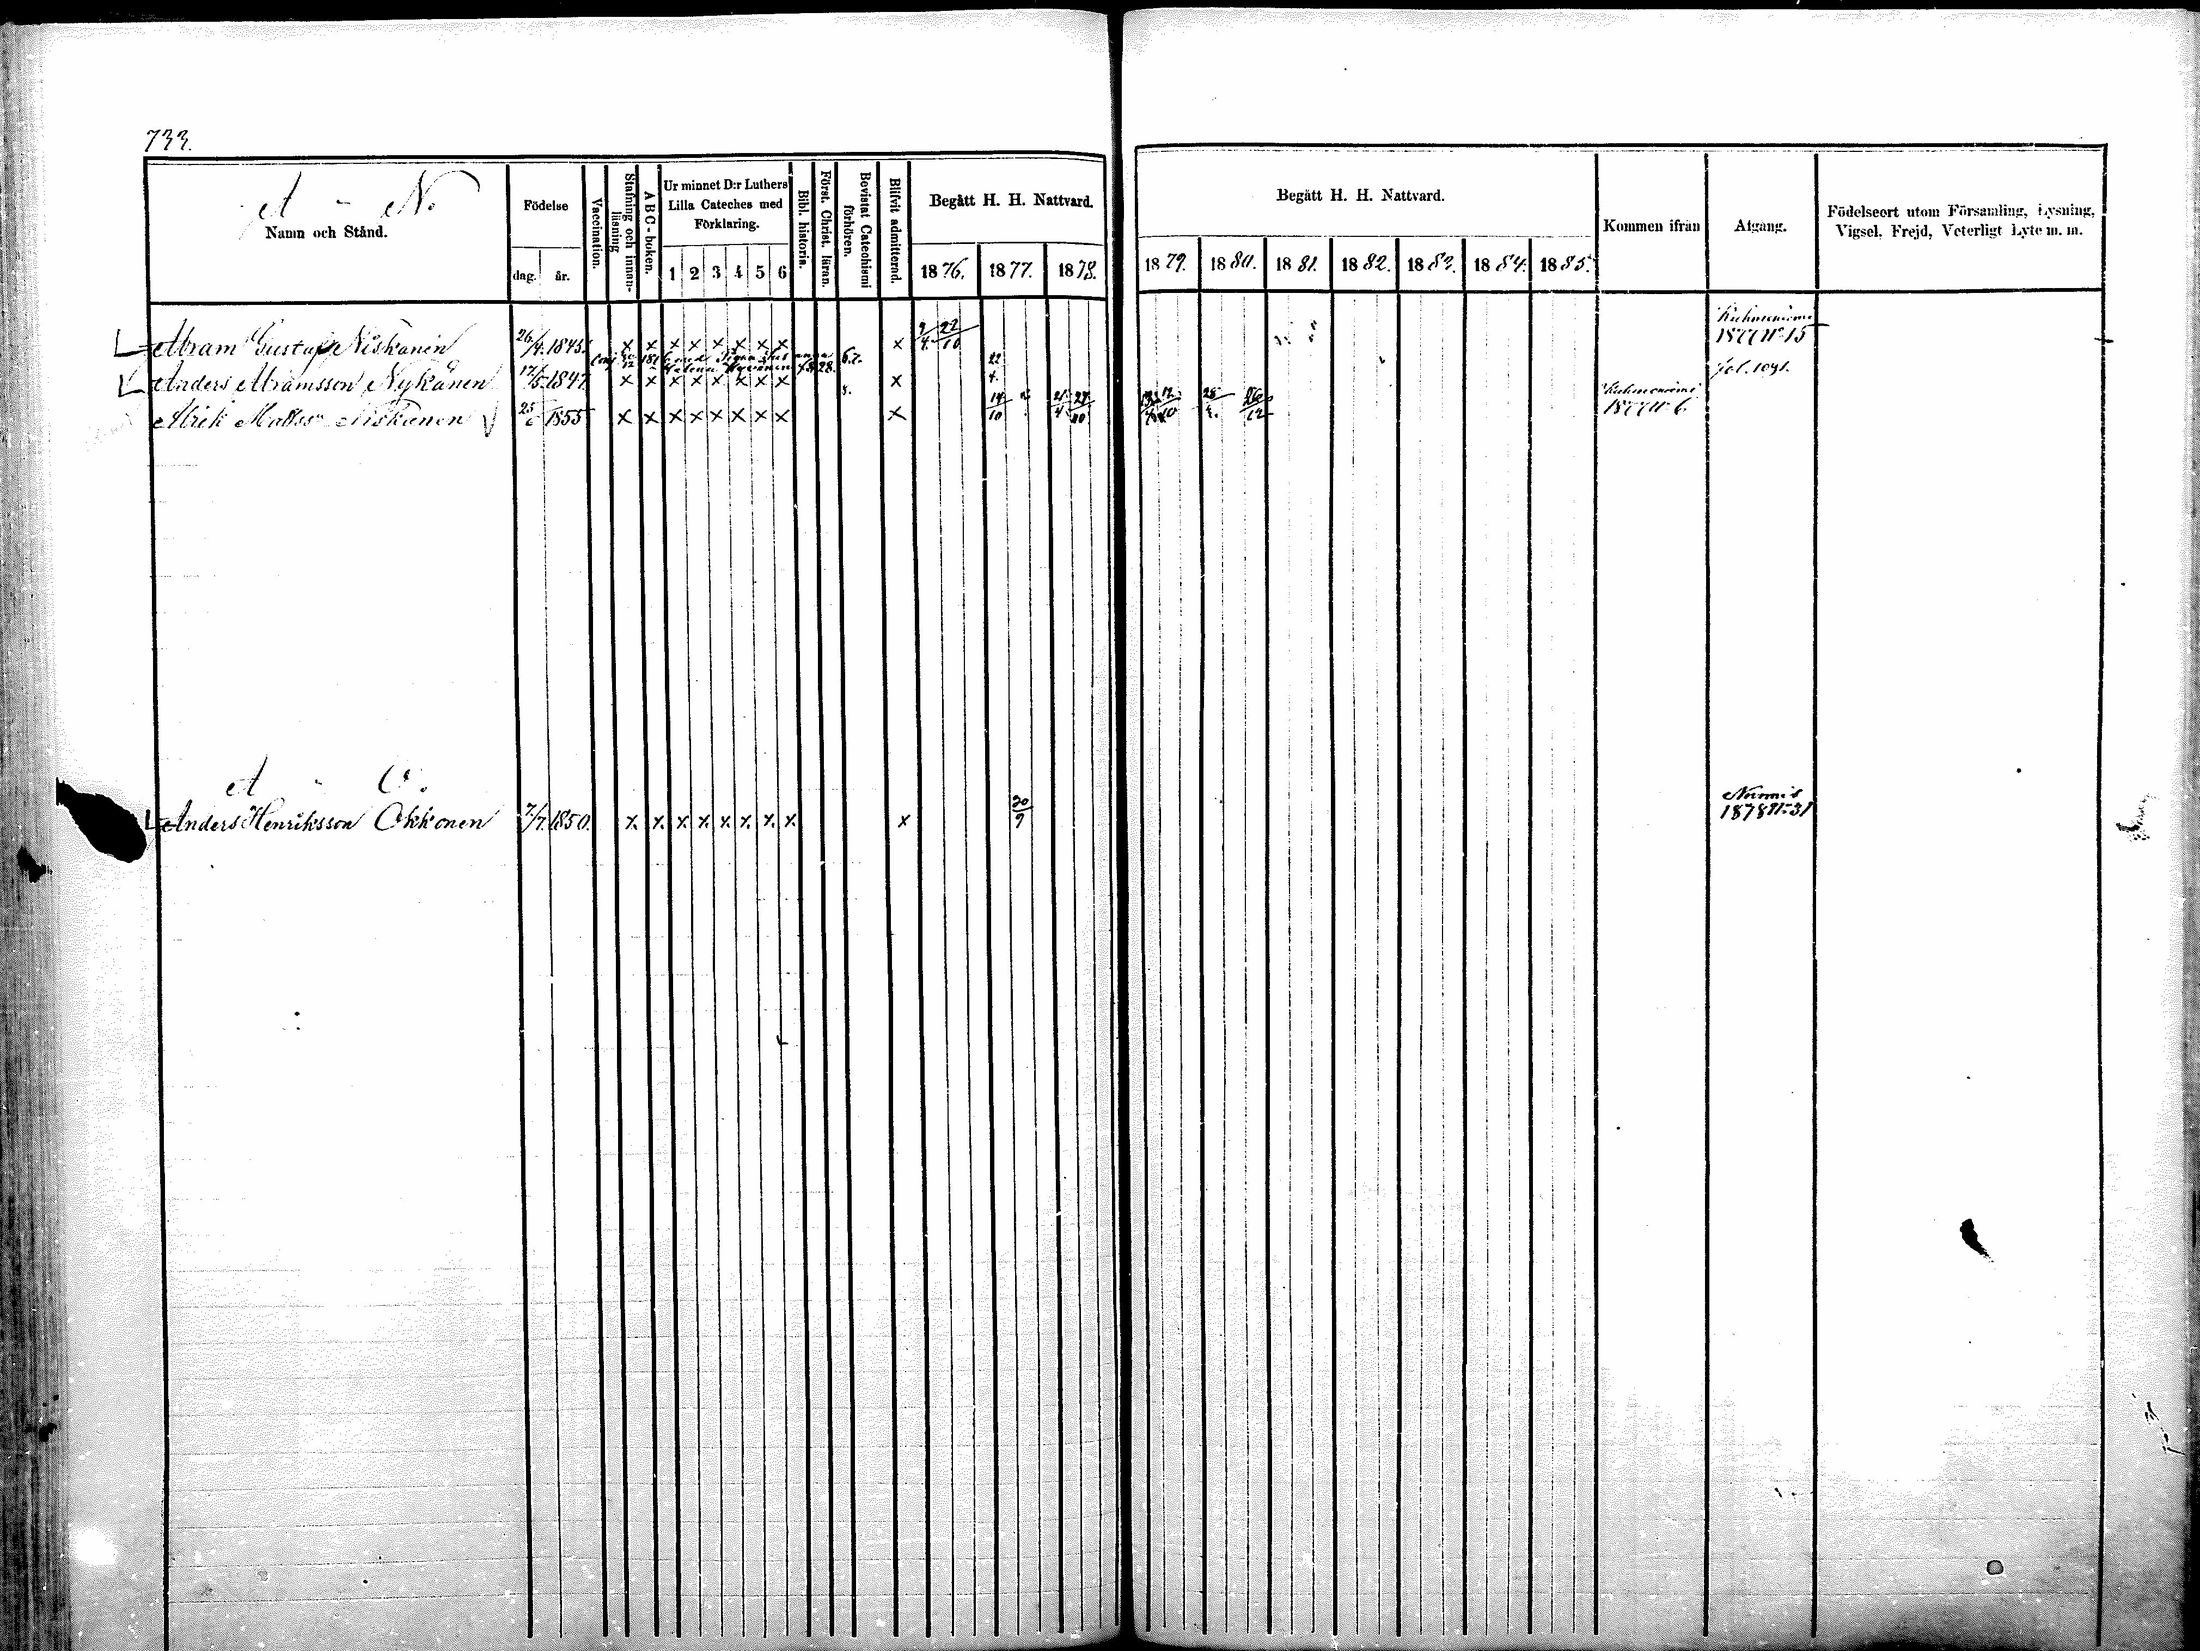 733.
A - N.
Namn och Stånd.
Födelse
dag. år.
Vaccination.
Stafning och innanläsning
ABC-boken.
Ur minnet D:r Luthers
Lilla Cateches med
Förklaring.
1 2 3 4 5 6
Bibl. historia.
Först. Christ. läran.
Bevistat Catechismi förhören.
Blifvit admitterad.
Begått H. H. Nattvard.
1876. 1877. 1878.
Begått H. H. Nattvard.
1879. 1880. 1881. 1882. 1883. 1884. 1885.
Kommen ifrån
Afgång.
Födelseort utom Församling, Lysning,
Vigsel, Frejd, Veterligt Lyte m. m.
Abram Gustaf Niskanen 26/4 1845. x x x x x x x x x 22/10 Kuhmoniemi 1877 N:15
Anders Abramsson Nykänen 17/5 1847 x x x x x x x x x 22/4 fol. 1091.
Alrik Matss: Niskanen 1855 x x x x x x x x x 14/10 Kuhmoniemi 1877 N:6
A - O.
Anders Henriksson Okkonen 7/7 1850. x x x x x x x x x 30/9 Nurmis 1878 N:31